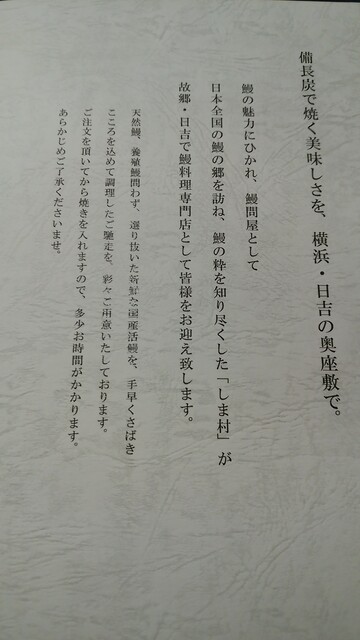 備長炭で焼く美味しさを、横浜・日吉の奥座敷で。
鰻の魅力にひかれ、鰻問屋として
日本全国の鰻の郷を訪ね、鰻の粋を知り尽くした「しま村」が
故郷・日吉で鰻料理専門店として皆様をお迎え致します。
天然鰻、養殖鰻問わず、選り抜いた新鮮な国産活鰻を、手早くさばき
こころを込めて調理したご馳走を、彩々ご用意いたしております。
ご注文を頂いてから焼きを入れますので、多少お時間がかかります。
あらかじめご了承くださいませ。